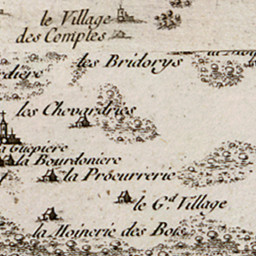 le Village
des Comples
les Bridorys
rdière
les Chevardries
la Guepiere
la Bourdoniere
la Procurrerie
le G.d Village
la Moinerie des Bois